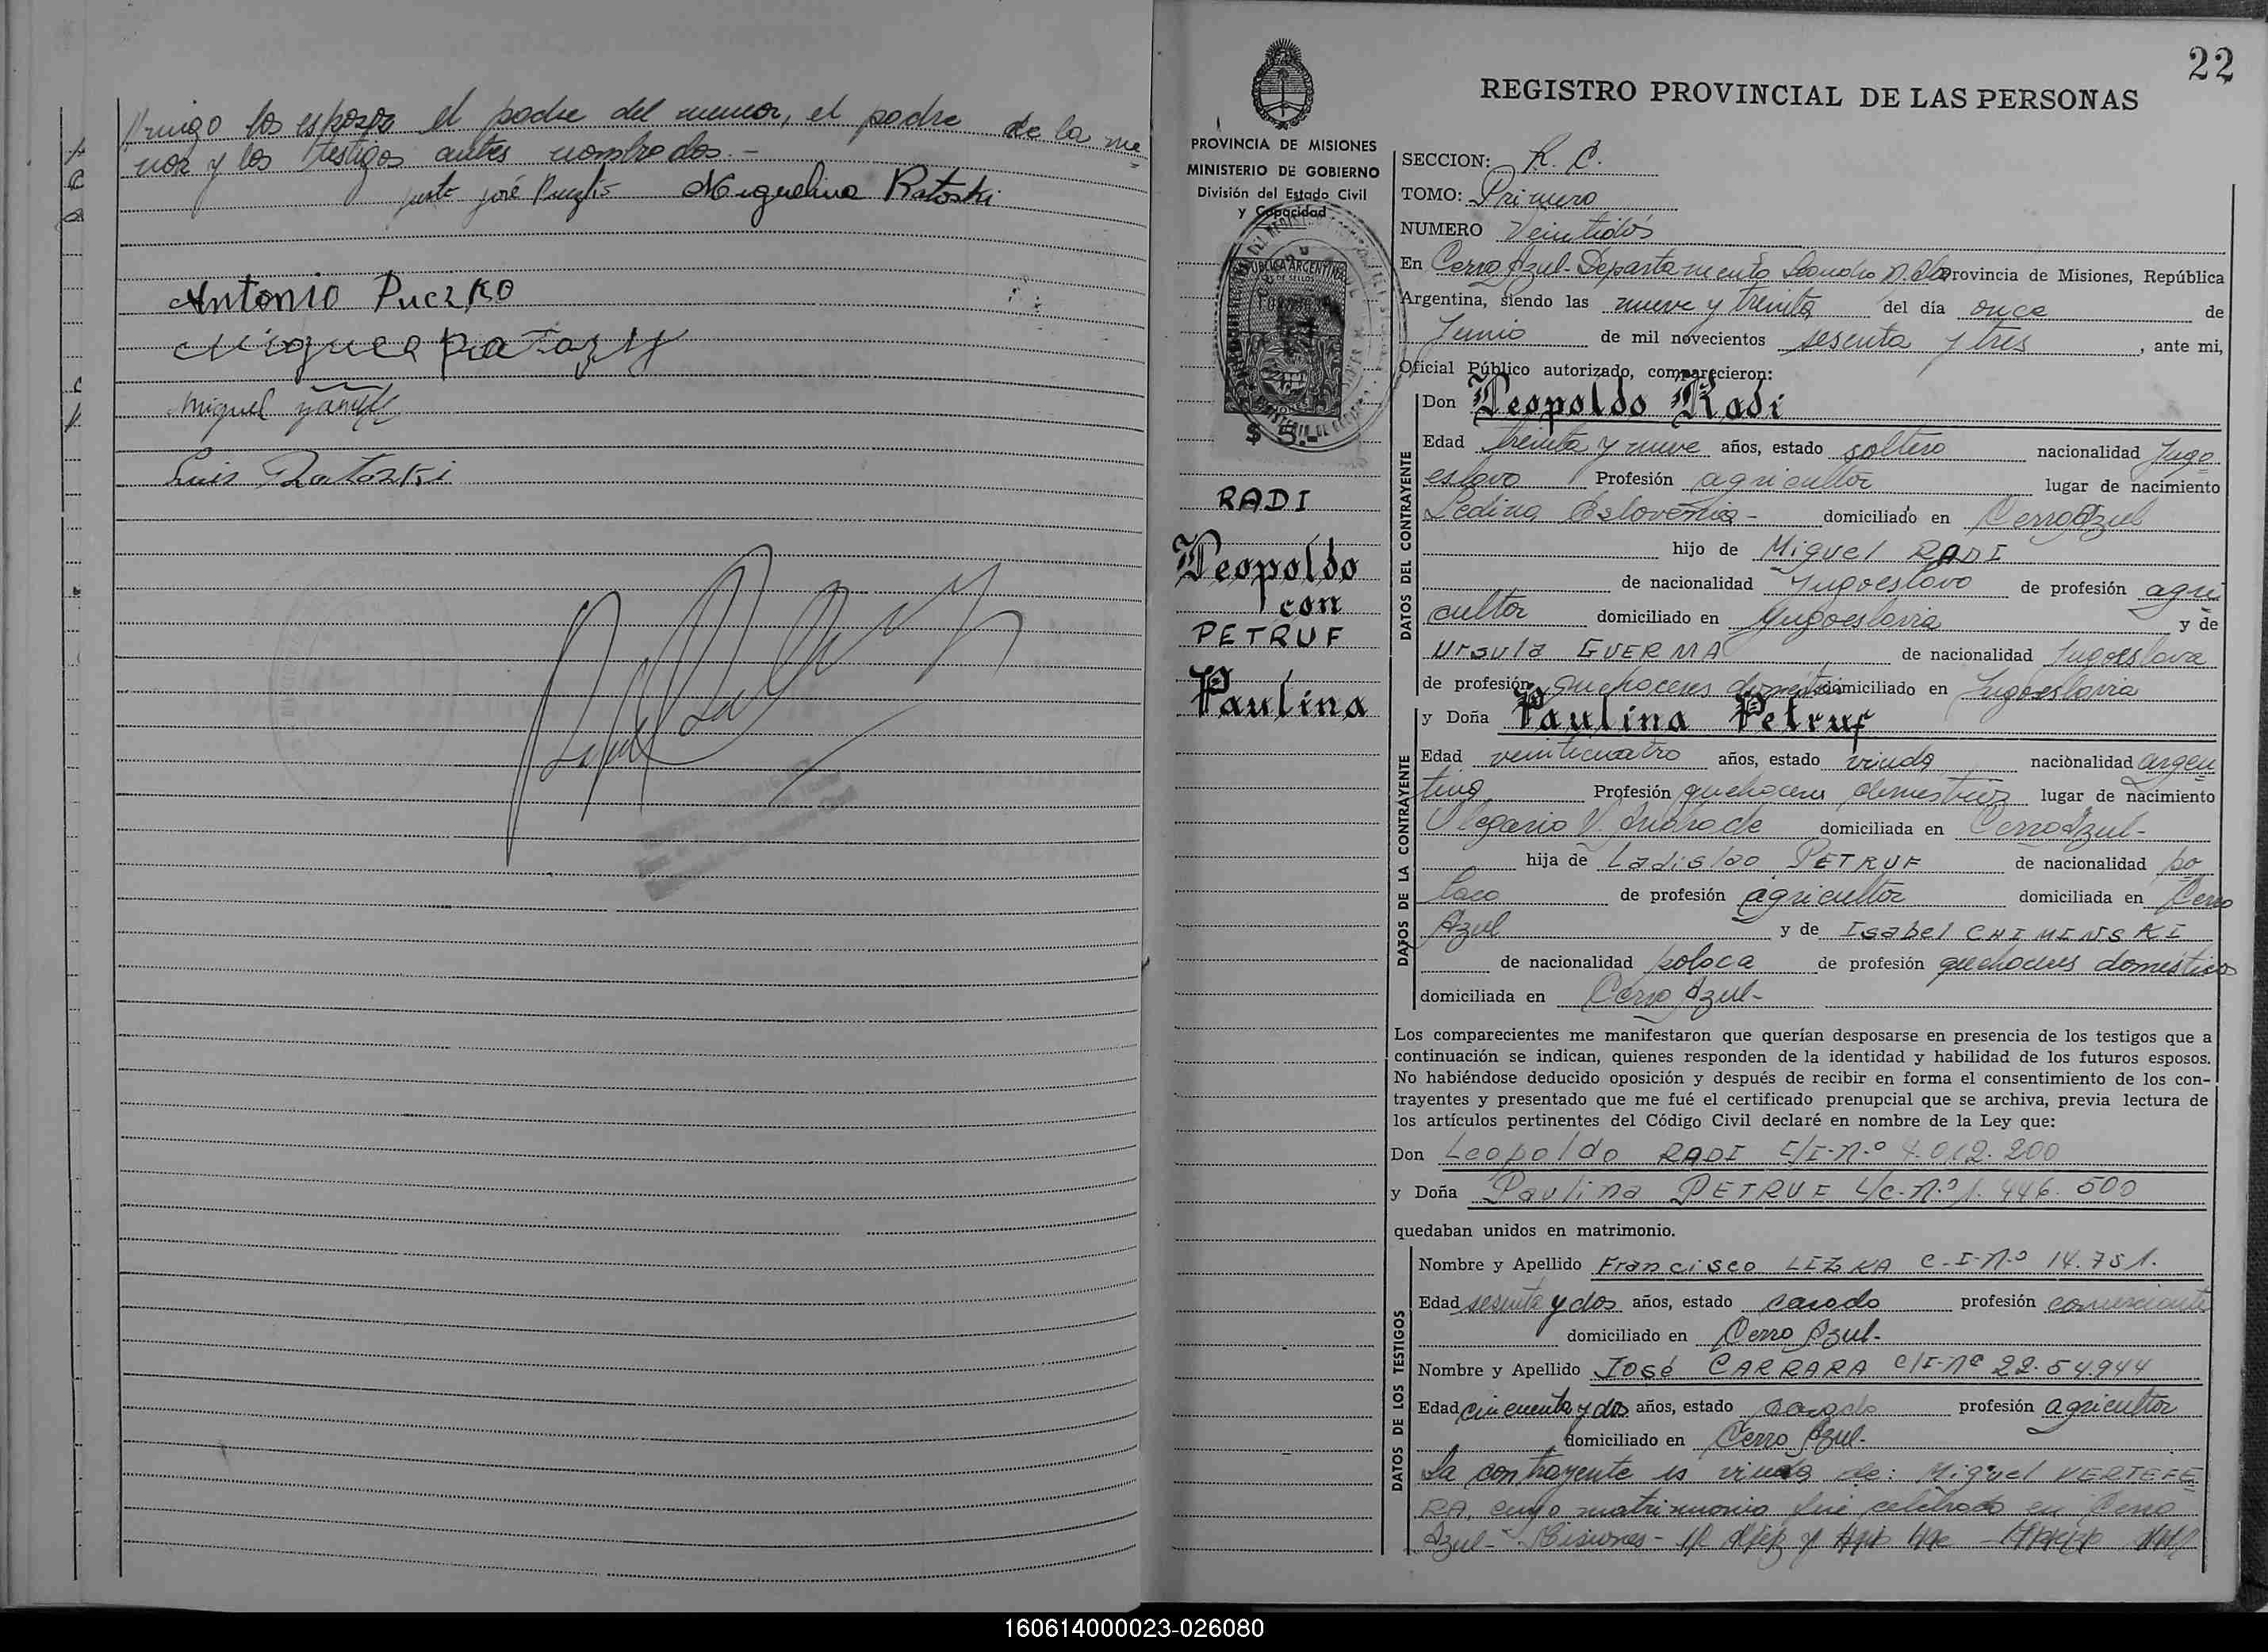 los esposos el padre del menor, el padre de la me=
nor y los testigos antes nombrados.-
José Miguelina Ratoski
Antonio Puczko
Miguel
Luis Ratozki
22
REGISTRO PROVINCIAL DE LAS PERSONAS
PROVINCIA DE MISIONES
MINISTERIO DE GOBIERNO
División del Estado Civil
y Capacidad
REPUBLICA ARGENTINA
$ 5.-
RADI
Leopoldo
con
PETRUF
Paulina
SECCION: R. C.
TOMO: Primero
NUMERO Veintidós
En Cerro Azul-Departamento Leandro N. Alem Provincia de Misiones, República
Argentina, siendo las nueve y treinta del día once de
Junio de mil novecientos sesenta y tres, ante mi,
Oficial Público autorizado, comparecieron:
DATOS DEL CONTRAYENTE
Don Leopoldo Radi
Edad treinta y nueve años, estado soltero nacionalidad Jugo=
eslavo Profesión agricultor lugar de nacimiento
Ledina Eslovenia- domiciliado en Cerro Azul
hijo de Miguel RADI
de nacionalidad Jugoeslavo de profesión agri=
cultor domiciliado en Yugoeslavia y de
Ursula GUERMA de nacionalidad Jugoeslava
de profesión quehaceres domésticos domiciliado en Jugoeslavia
DATOS DE LA CONTRAYENTE
y Doña Paulina Petruf
Edad veinticuatro años, estado viuda nacionalidad argen=
tina Profesión quehaceres domésticos lugar de nacimiento
Olegario V. Andrade domiciliada en Cerro Azul-
hija de Ladislao PETRUF de nacionalidad po=
laco de profesión agricultor domiciliada en Cerro
Azul y de Isabel CHIMINSKI
de nacionalidad polaca de profesión quehaceres domésticos
domiciliada en Cerro Azul-
Los comparecientes me manifestaron que querían desposarse en presencia de los testigos que a
continuación se indican, quienes responden de la identidad y habilidad de los futuros esposos.
No habiéndose deducido oposición y después de recibir en forma el consentimiento de los con-
trayentes y presentado que me fué el certificado prenupcial que se archiva, previa lectura de
los artículos pertinentes del Código Civil declaré en nombre de la Ley que:
Don Leopoldo RADI C/I-N.º 4.012.200
y Doña Paulina PETRUF L/C-N.º 1.446.500
quedaban unidos en matrimonio.
DATOS DE LOS TESTIGOS
Nombre y Apellido Francisco LIZKA C-I-N.º 14.751.
Edad sesenta y dos años, estado casado profesión comerciante
domiciliado en Cerro Azul-
Nombre y Apellido José CARRARA C/I-Nº 22.54.944
Edad cincuenta y dos años, estado casado profesión agricultor
domiciliado en Cerro Azul-
La contrayente es viuda de: Miguel VERTEFE=
RA, cuyo matrimonio fué celebrado en Cerro
Azul-Misiones-
160614000023-026080